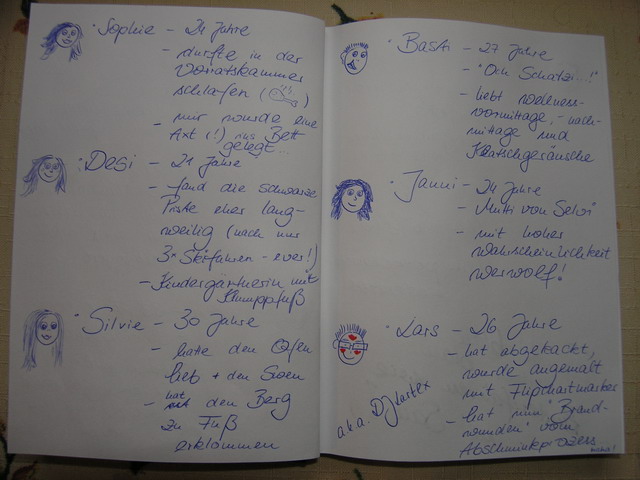 · Sophie – 24 Jahre
– durfte in der
Vorratskammer
schlafen ( )
– mir wurde eine
Axt (!) ins Bett
gelegt...
· Desi – 21 Jahre
– fand die schwarze
Piste eher lang-
weilig (nach nur
3x Skifahren – ever!)
– Kindergärtnerin mit
Klumppfuß
· Silvie – 30 Jahre
– hatte den Ofen
lieb + den Sven
– hat den Berg
zu Fuß
erklommen
· Basti – 27 Jahre
– "Och Schatzi...!"
– liebt wellness-
vormittage, -nach-
mittage und
Klatschgeräusche
· Janni – 24 Jahre
– "Mutti von Selvi"
– mit hoher
wahrscheinlichkeit
werwolf!
· Lars – 26 Jahre
– hat abgekackt,
wurde angemalt
mit Flipchartmarker
– hat nun "Brand-
wunden" vom
Abschminkprozess
a.k.a. DJ Lartex